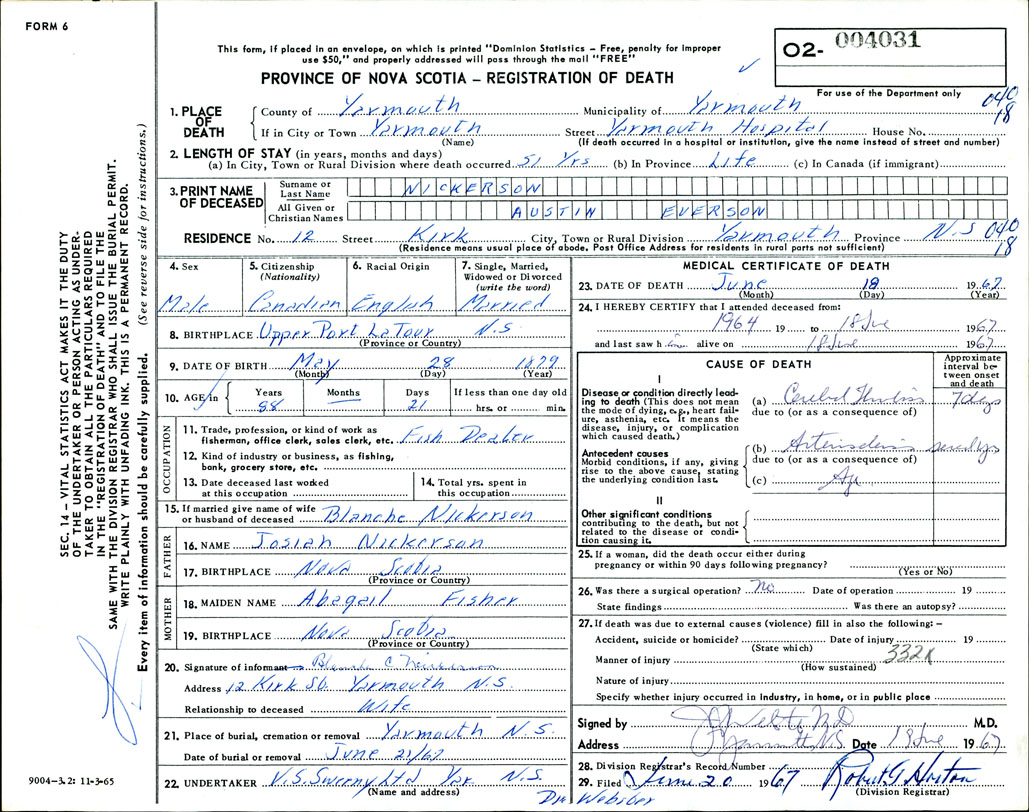 FORM 6
This form, if placed in an envelope, on which is printed "Dominion Statistics – Free, penalty for improper
use $50," and properly addressed will pass through the mail "FREE"
PROVINCE OF NOVA SCOTIA – REGISTRATION OF DEATH
O2- 004031
For use of the Department only
040
18
SEC. 14 – VITAL STATISTICS ACT MAKES IT THE DUTY
OF THE UNDERTAKER OR PERSON ACTING AS UNDER-
TAKER TO OBTAIN ALL THE PARTICULARS REQUIRED
IN THE "REGISTRATION OF DEATH" AND TO FILE THE
SAME WITH THE DIVISION REGISTRAR WHO SHALL ISSUE THE BURIAL PERMIT.
WRITE PLAINLY WITH UNFADING INK. THIS IS A PERMANENT RECORD.
Every item of information should be carefully supplied. (See reverse side for instructions.)
1. PLACE OF DEATH
County of Yarmouth Municipality of Yarmouth
If in City or Town Yarmouth Street Yarmouth Hospital House No.
(Name) (If death occurred in a hospital or institution, give the name instead of street and number)
2. LENGTH OF STAY (in years, months and days)
(a) In City, Town or Rural Division where death occurred 51 Yrs (b) In Province Life (c) In Canada (if immigrant)
3. PRINT NAME OF DECEASED
Surname or Last Name NICKERSON
All Given or Christian Names AUSTIN EVERSON
RESIDENCE No. 12 Street Kirk City, Town or Rural Division Yarmouth Province N.S 040
18
(Residence means usual place of abode. Post Office Address for residents in rural parts not sufficient)
4. Sex
Male
5. Citizenship (Nationality)
Canadian
6. Racial Origin
English
7. Single, Married, Widowed or Divorced (write the word)
Married
8. BIRTHPLACE Upper Port LaTour N.S.
(Province or Country)
9. DATE OF BIRTH May 28 1879
(Month) (Day) (Year)
10. AGE in Years Months Days If less than one day old
88 21 hrs. or min.
OCCUPATION
11. Trade, profession, or kind of work as
fisherman, office clerk, sales clerk, etc. Fish Dealer
12. Kind of industry or business, as fishing,
bank, grocery store, etc.
13. Date deceased last worked
at this occupation
14. Total yrs. spent in
this occupation
15. If married give name of wife
or husband of deceased Blanche Nickerson
FATHER
16. NAME Josiah Nickerson
17. BIRTHPLACE Nova Scotia
(Province or Country)
MOTHER
18. MAIDEN NAME Abegail Fisher
19. BIRTHPLACE Nova Scotia
(Province or Country)
20. Signature of informant Blanche C Nickerson
Address 12 Kirk St. Yarmouth N.S.
Relationship to deceased Wife
21. Place of burial, cremation or removal Yarmouth N.S.
Date of burial or removal June 21/67
22. UNDERTAKER V.S. Sweeny Ltd Yar. N.S.
(Name and address)
9004-3.2: 11-3-65
MEDICAL CERTIFICATE OF DEATH
23. DATE OF DEATH June 18 1967
(Month) (Day) (Year)
24. I HEREBY CERTIFY that I attended deceased from:
1964 19 to 18 June 1967
and last saw him alive on 18 June 1967
CAUSE OF DEATH
Approximate interval between onset and death
I
Disease or condition directly lead-
ing to death (This does not mean
the mode of dying, e.g., heart fail-
ure, asthenia, etc. It means the
disease, injury, or complication
which caused death.)
(a) Cerebral Thrombosis 7 days
due to (or as a consequence of)
Antecedent causes
Morbid conditions, if any, giving
rise to the above cause, stating
the underlying condition last.
(b) Arteriosclerosis several yrs
due to (or as a consequence of)
(c) Age
II
Other significant conditions
contributing to the death, but not
related to the disease or condi-
tion causing it.
25. If a woman, did the death occur either during
pregnancy or within 90 days following pregnancy?
(Yes or No)
26. Was there a surgical operation? No Date of operation 19
State findings Was there an autopsy?
27. If death was due to external causes (violence) fill in also the following: –
Accident, suicide or homicide? Date of injury 19
(State which)
332X
Manner of injury
(How sustained)
Nature of injury
Specify whether injury occurred in industry, in home, or in public place
Signed by Webster MD M.D.
Address Yarmouth N.S. Date 18 June 1967
28. Division Registrar's Record Number
29. Filed June 20 1967 Robert G. Horton
(Division Registrar)
Dr. Webster